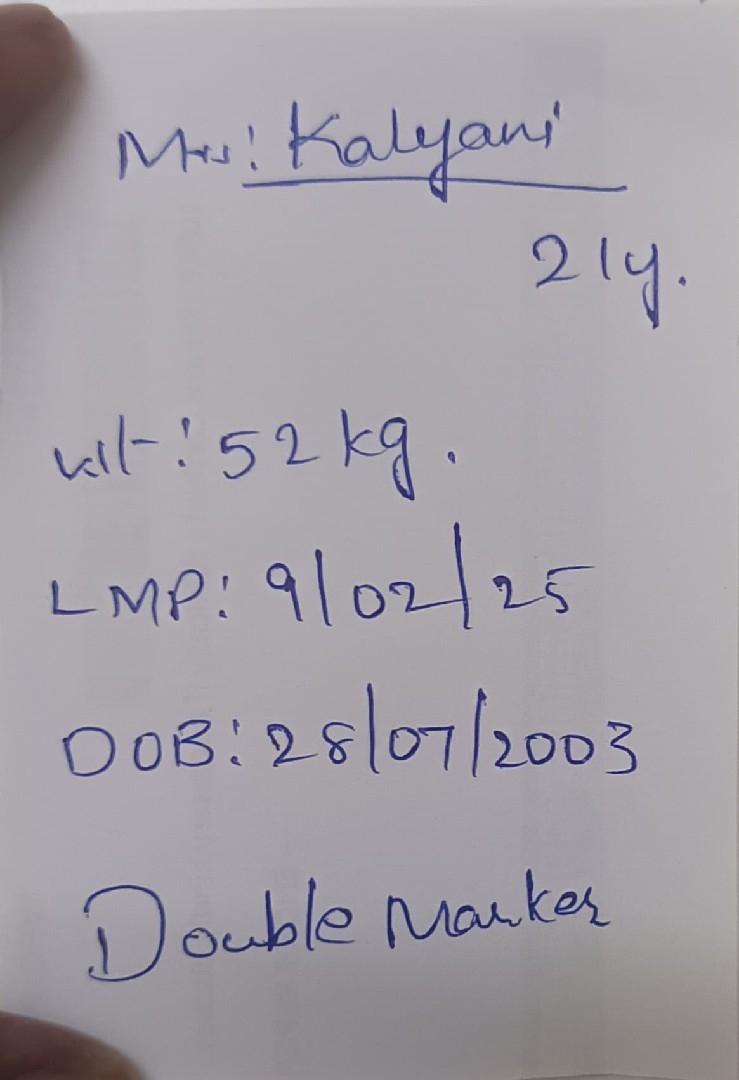 Mrs: Kalyani
21y.
Wt: 52 kg.
LMP: 9/02/25
DOB: 28/07/2003
Double Marker